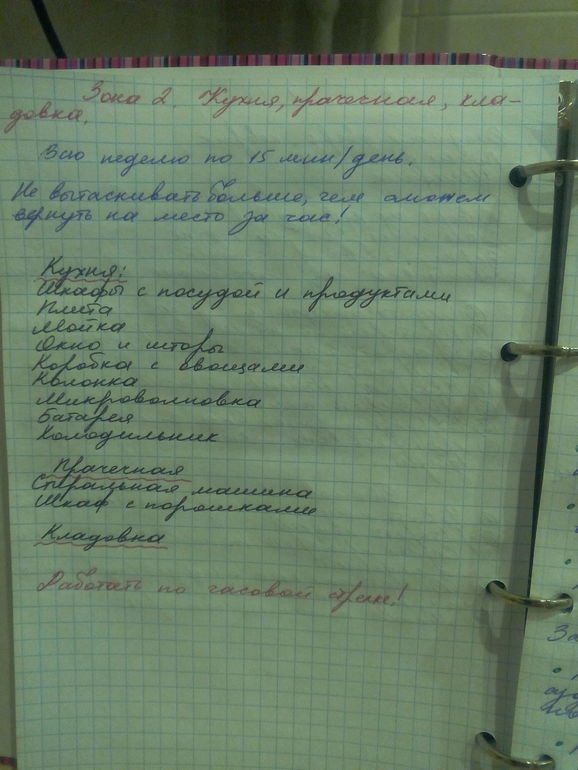 Зона 2. Кухня, прачесная, кла-
довка.
Всю неделю по 15 мин/день.
Не вытаскивать больше, чем сможем
вернуть на место за час!
Кухня:
Шкафы с посудой и продуктами
Плита
Мойка
Окно и шторы
Коробка с овощами
Колонка
Микроволновка
Батарея
Холодильник
Прачечная
Стиральная машина
Шкаф с порошками
Кладовка
Работать по часовой стрелке!
За